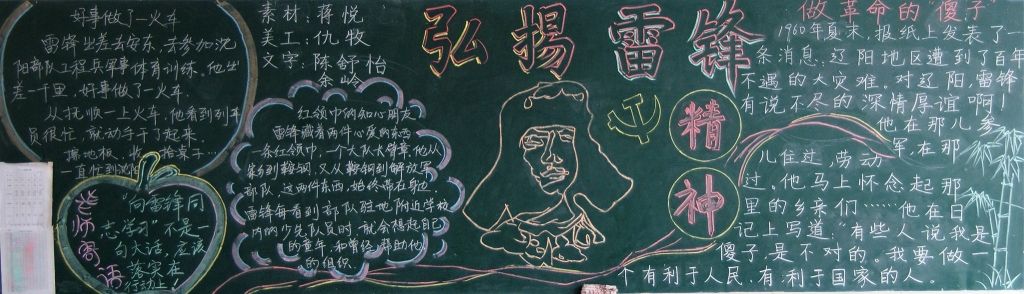 好事做了一火车
雷锋出差去安东，去参加沈
阳部队工程兵军事体育训练。他出
差一千里，好事做了一火车
从抚顺一上火车，他看到列车
员很忙，就动手干了起来
擦地板，
一直忙到沈阳
老师寄语
"向雷锋同
志学习"不是一
句大话，应该
落实在
行动上！
素材：蒋悦
美工：仇牧
文字：陈舒怡
余岭
红领巾的知心朋友
雷锋藏着两件心爱的东西
一条红领巾，一个大队长臂章，他从
乡到鞍钢，又从鞍钢到解放军
部队，这两件东西，始终带在身边。
雷锋每看到部队驻地附近学校
内的少先队员时，就会想起自己
的童年，和曾经帮助他
的组织
弘揚雷锋
精
神
做革命的"傻子"
1960年夏末，报纸上发表了一
条消息，辽阳地区遭到了百年
不遇的大灾难。对辽阳，雷锋
有说不尽的深情厚谊啊！
他在那儿参
军，在那
儿住过，劳动
过。他马上怀念起那
里的乡亲们……他在日
记上写道，"有些人说我是
傻子，是不对的。我要做一
个有利于人民，有利于国家的人。